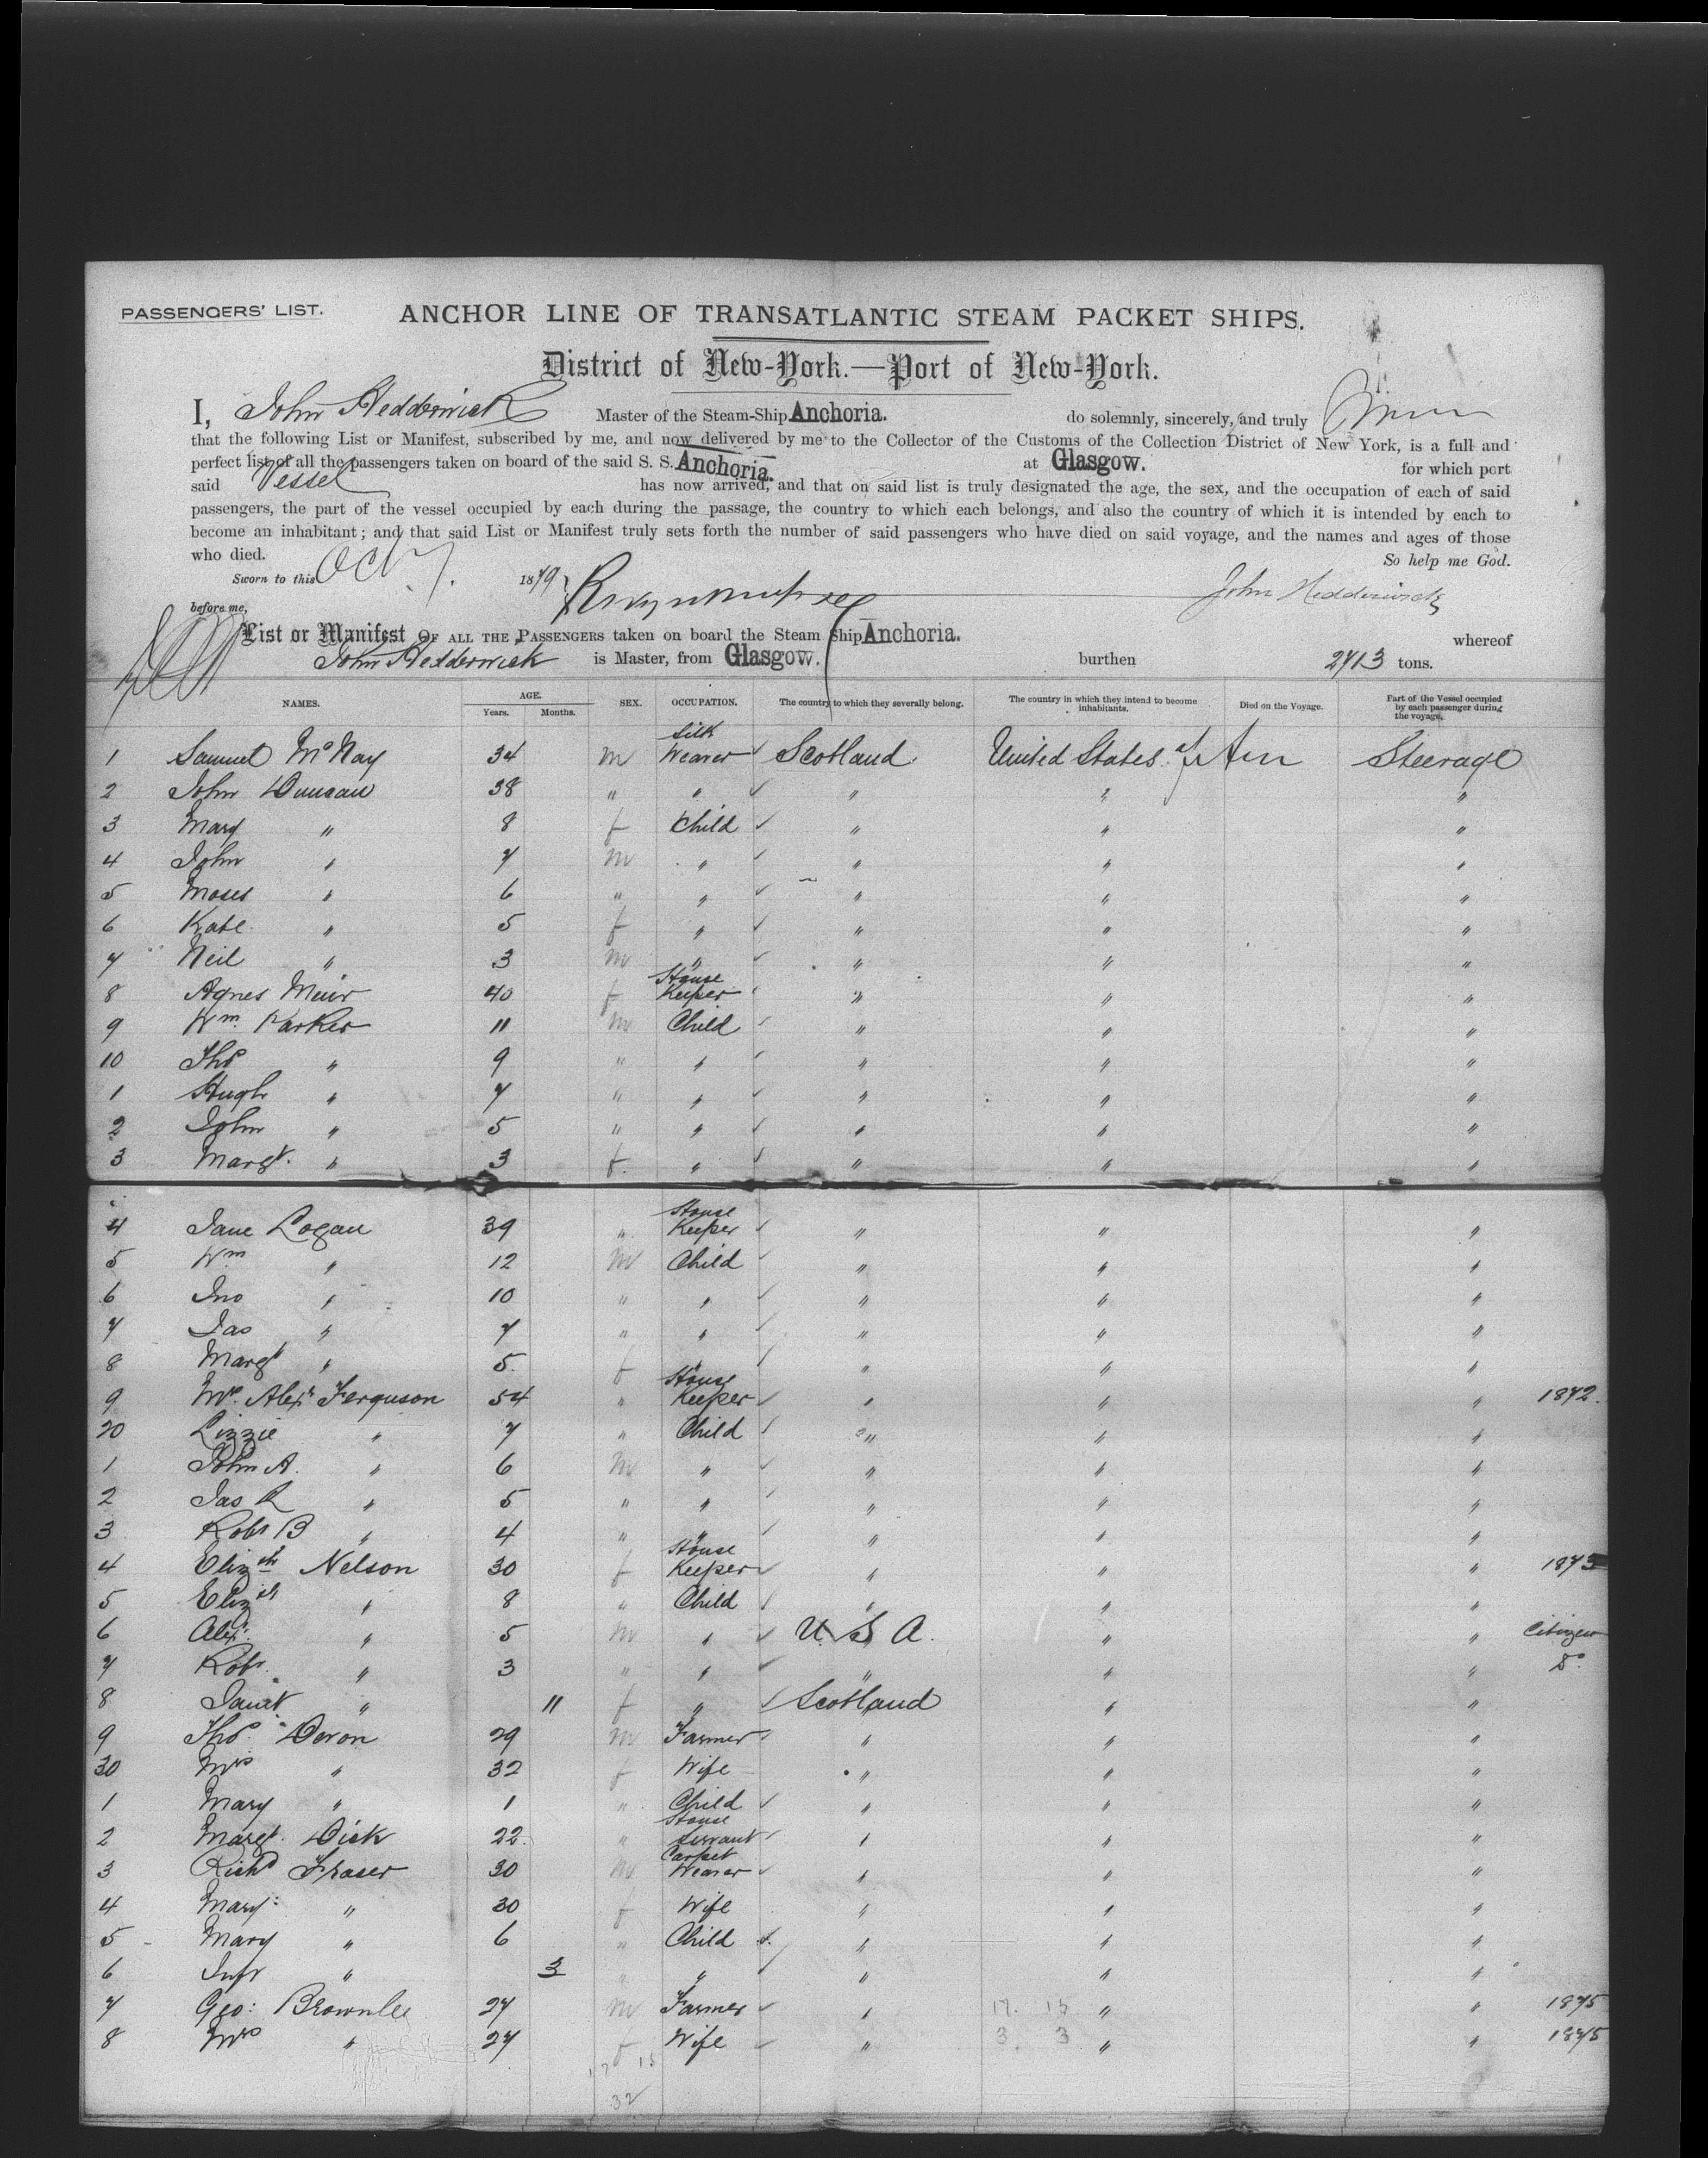 PASSENGERS' LIST.
ANCHOR LINE OF TRANSATLANTIC STEAM PACKET SHIPS.
District of New-York.—Port of New-York.
I, John Hedderwick Master of the Steam-Ship Anchoria. do solemnly, sincerely, and truly
that the following List or Manifest, subscribed by me, and now delivered by me to the Collector of the Customs of the Collection District of New York, is a full and
perfect list of all the passengers taken on board of the said S. S. Anchoria. at Glasgow. for which port
said Vessel has now arrived, and that on said list is truly designated the age, the sex, and the occupation of each of said
passengers, the part of the vessel occupied by each during the passage, the country to which each belongs, and also the country of which it is intended by each to
become an inhabitant; and that said List or Manifest truly sets forth the number of said passengers who have died on said voyage, and the names and ages of those
who died. So help me God.
Sworn to this Oct 7. 1879 John Hedderwick
before me,
List or Manifest OF ALL THE PASSENGERS taken on board the Steam Ship Anchoria. whereof
John Hedderwick is Master, from Glasgow. burthen 2713 tons.
NAMES. AGE. Years. Months. SEX. OCCUPATION. The country to which they severally belong. The country in which they intend to become inhabitants. Died on the Voyage. Part of the Vessel occupied by each passenger during the voyage.
1 Samuel McNay 34 m Silk Weaver Scotland United States of Am Steerage
2 John Duncan 38 " " " " "
3 Mary " 8 f Child " " "
4 John " 7 m " " " "
5 Moses " 6 " " " " "
6 Kate " 5 f " " " "
7 Neil " 3 m " " " "
8 Agnes Muir 40 f House Keeper " " "
9 Wm. Parker 11 m Child " " "
10 Thos " 9 " " " " "
1 Hugh " 7 " " " " "
2 John " 5 " " " " "
3 Margt. " 3 f. " " " "
4 Jane Logan 39 " House Keeper " " "
5 Wm " 12 m Child " " "
6 Jno " 10 " " " " "
7 Jas " 7 " " " " "
8 Margt " 5. f " " " "
9 Mrs. Alexr Ferguson 54 " House Keeper " " " 1872.
20 Lizzie " 7 " Child " " "
1 John A. " 6 m " " " "
2 Jas R " 5 " " " " "
3 Robt B " 4 " " " " "
4 Elizth Nelson 30 f House Keeper " " " 1873
5 Elizth " 8 " Child " " "
6 Alexr. " 5 m " U. S. A. " " Citizen
7 Robt. " 3 " " " " " Do
8 Janet " 11 f " Scotland " "
9 Thos. Deron 29 m Farmer " " "
30 Mrs " 32 f Wife " " "
1 Mary " 1 " Child " " "
2 Margt. Dick 22 " House Servant " " "
3 Richd Fraser 30 m Carpet Weaver " " "
4 Mary: " 30 f Wife " " "
5 Mary " 6 " Child " " "
6 Inft " 3 " " " " "
7 Geo: Brownlee 27 m Farmer " 17. 15 " " 1875
8 Mrs " 27 f Wife " 3. 3 " " 1875
17 15
32